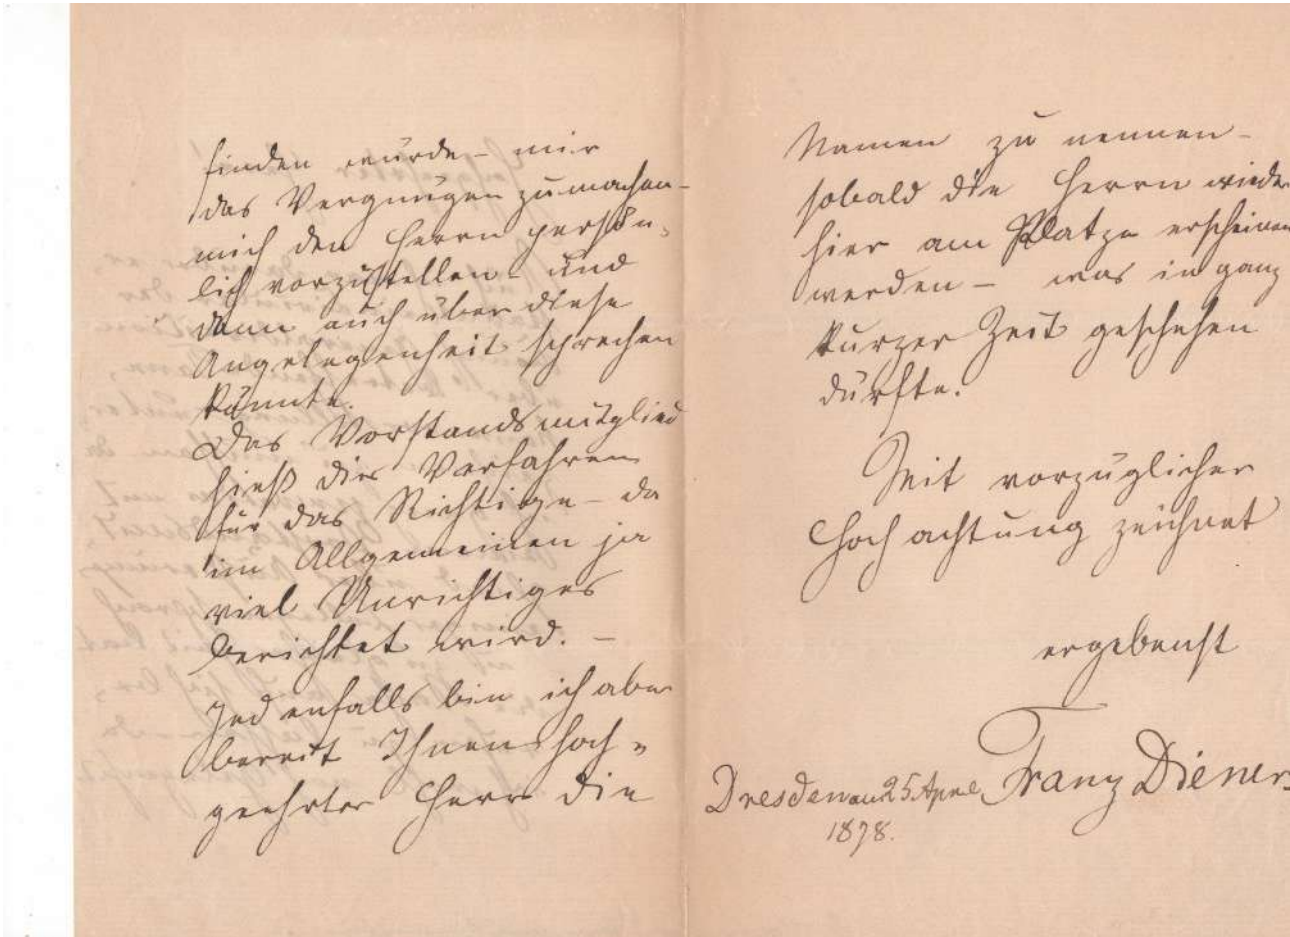 finden würde – mir
das Vergnügen zu machen –
mich den Herrn persön-
lich vorzustellen – und
dann auch über diese
Angelegenheit sprechen
könnte.
Das Vorstandsmitglied
hieß dies Verfahren
für das Richtige – da
im Allgemeinen ja
viel Unrichtiges
berichtet wird. –
Jedenfalls bin ich aber
bereit Ihnen hoch-
geehrter Herr die
Namen zu nennen –
sobald die Herrn wieder
hier am Platze erscheinen
werden – was in ganz
kurzer Zeit geschehen
dürfte.
Mit vorzüglicher
Hochachtung zeichnet
ergebenst
Franz Diener
Dresden am 25. April
1878.